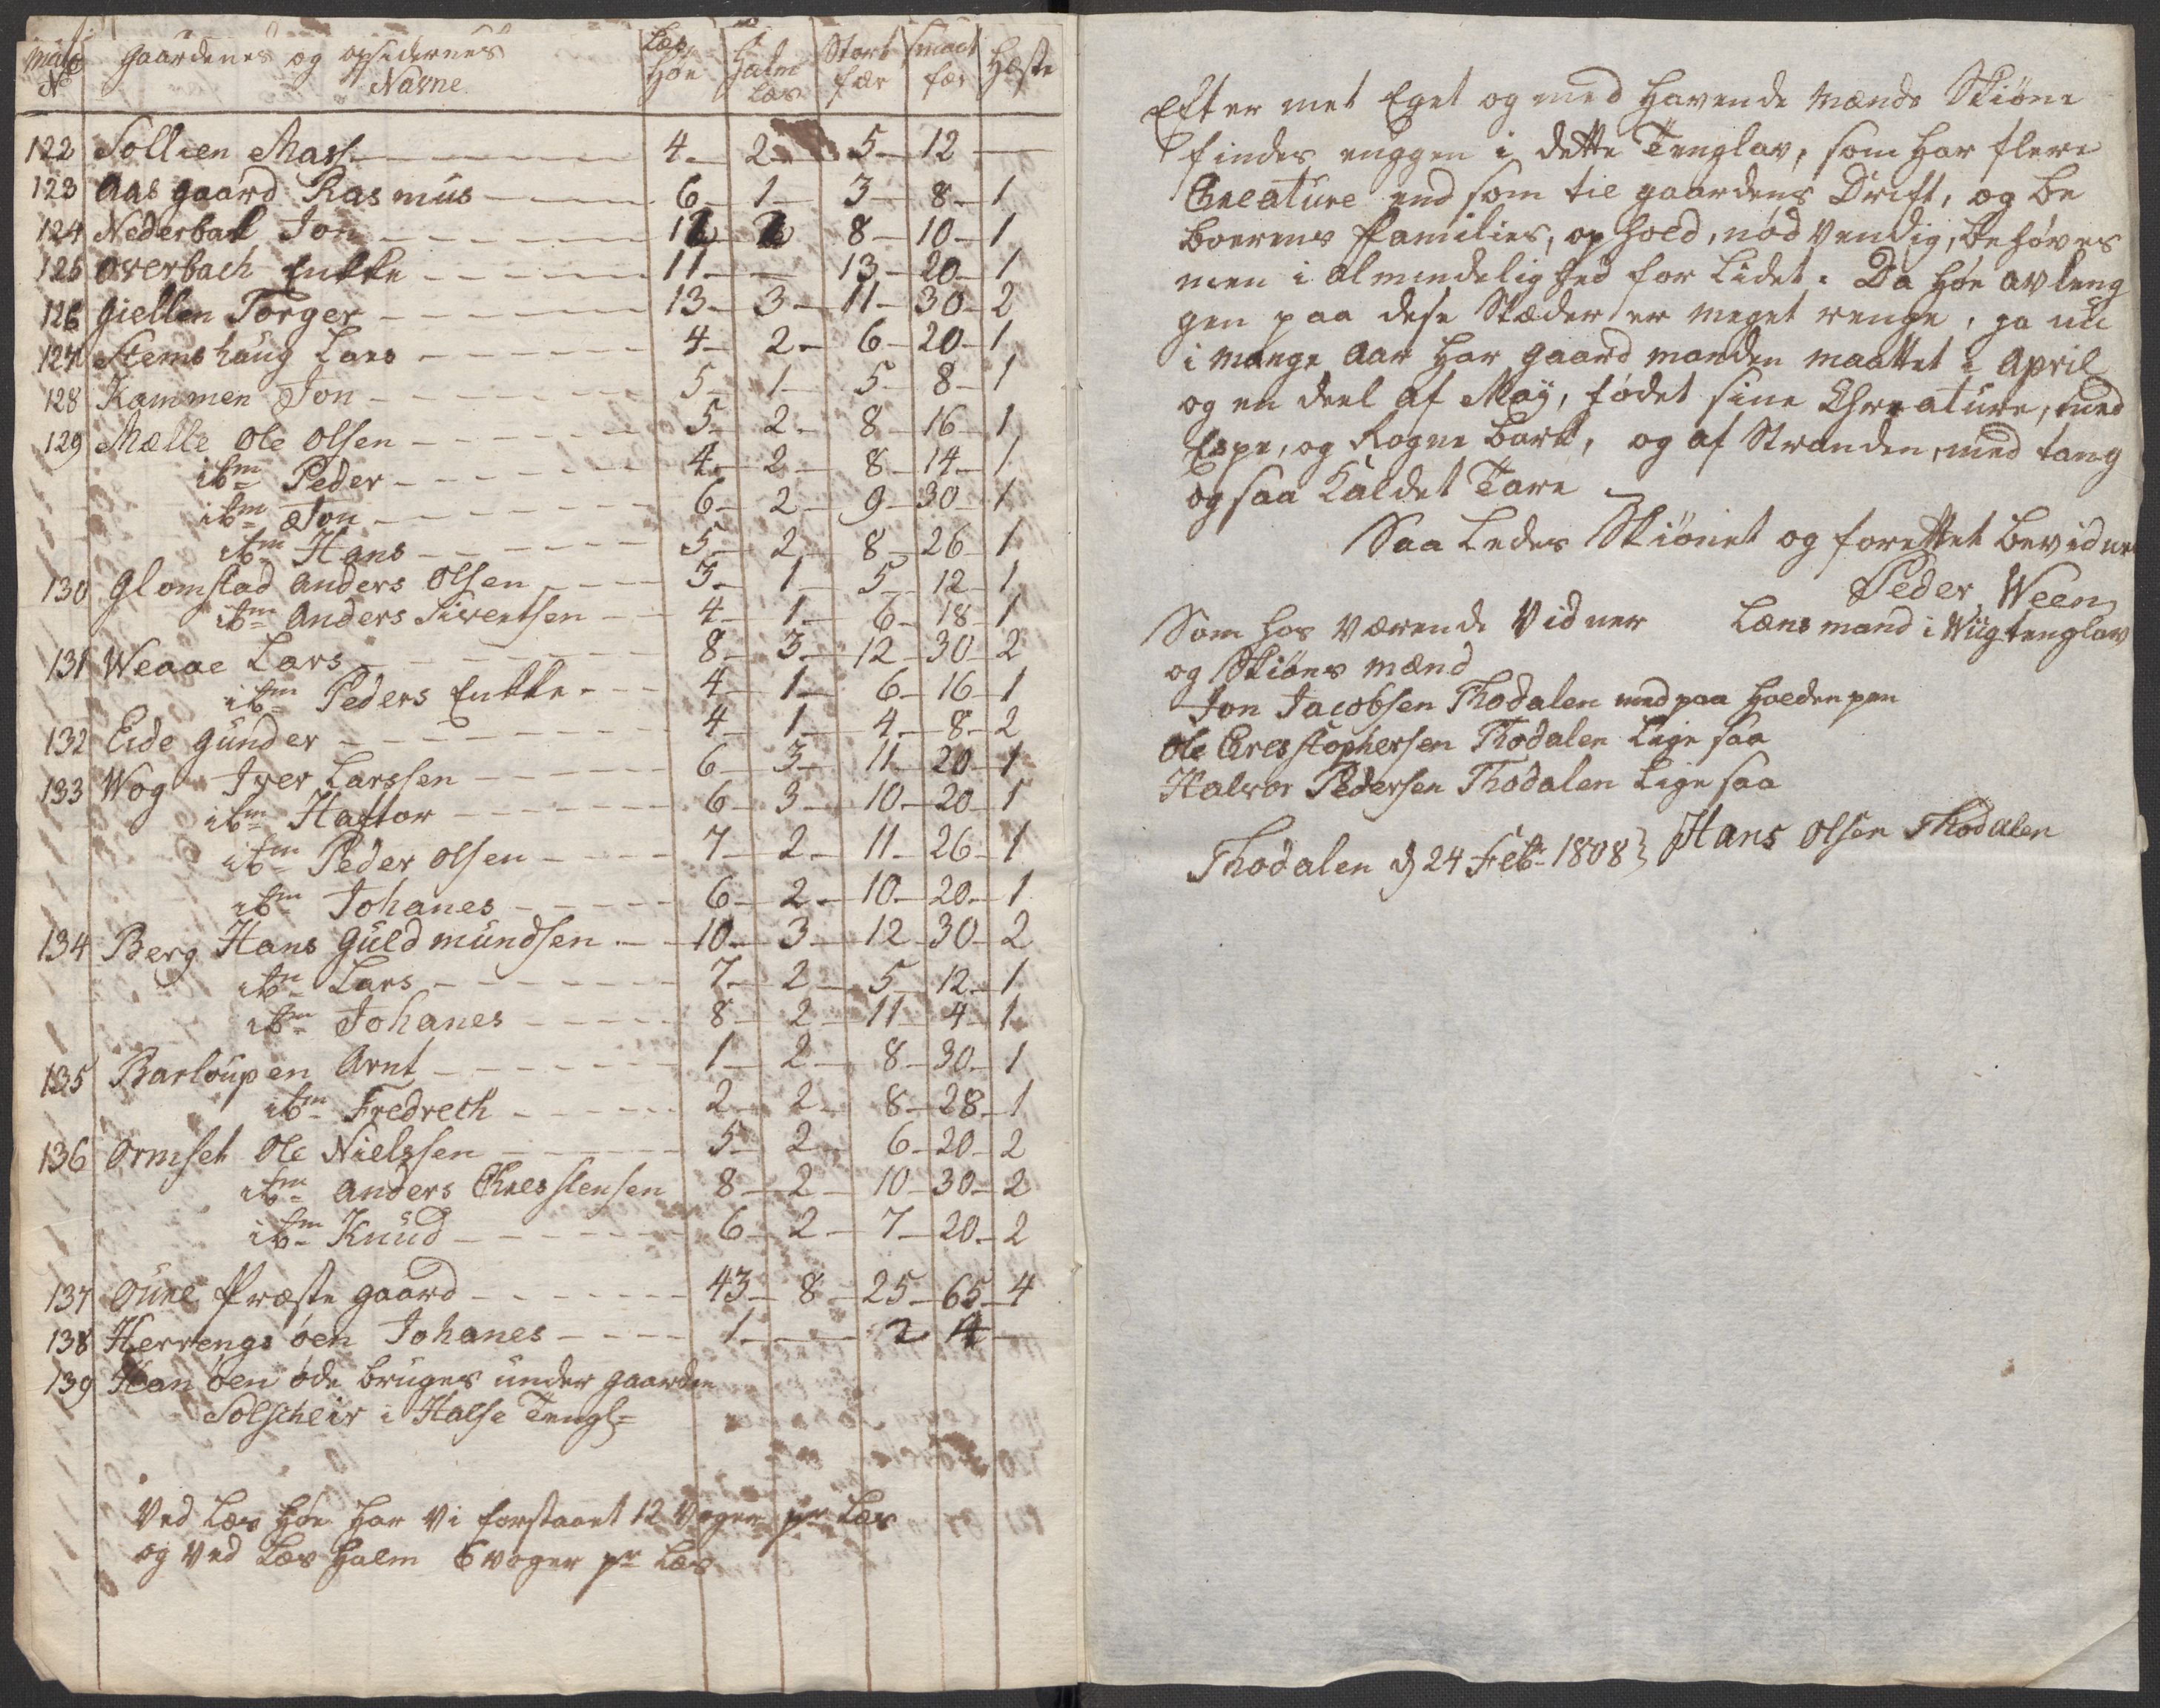 Matr No | Gaardenes og opsidernes Navne | Læs Høe | Halm Læs | Stort fæe | Smaat fæe | Heste
122 Sollien Mass 4 2 5 12 —
123 Aasgaard Rasmus 6 1 3 8 1
124 Nederbak Jon 12 2 8 10 1
125 Overbach Enkke 11 — 13 20 1
126 Giellen Torger 13 3 11 30 2
127 Stemshaug Lars 4 2 6 20 1
128 Kammen Jon 5 1 5 8 1
129 Mælle Ole Olsen 5 2 8 16 1
ibm Peder 4 2 8 14 1
ibm Jon 6 2 9 30 1
ibm Hans 5 2 8 26 1
130 Glomstad Anders Olsen 3 1 5 12 1
ibm Anders Sivertsen 4 1 6 18 1
131 Weaae Lars 8 3 12 30 2
ibm Peders Enkke 4 1 6 16 1
132 Eide Gunder 4 1 4 8 2
133 Wog Iver Larssen 6 3 11 20 1
ibm Haftor 6 3 10 20 1
ibm Peder Olsen 7 2 11 26 1
ibm Johanes 6 2 10 20 1
134 Berg Hans Guldmundsen 10 3 12 30 2
ibm Lars 7 2 5 12 1
ibm Johanes 8 2 11 4 1
135 Barloupen Arnt 1 2 8 30 1
ibm Fredrech 2 2 8 28 1
136 Ormset Ole Nielssen 5 2 6 20 2
ibm Anders Chresstensen 8 2 10 30 2
ibm Knud 6 2 7 20 2
137 Oure Præste gaard 43 8 25 65 4
138 Herrengs øen Johanes 1 — 2 4 —
139 Kan øen øde bruges under gaarden
Solscheir i Halse Tengl=
Ved Læs Høe har vi forstaaet 12 Voger pr Læs
og ved Læs Halm 6 voger pr Læs
Efter met Eget og med havende Mænds Skiøne
findes inggen i dette Tenglav, som har flere
Creature end som til gaardens Drift, og be
boerens Families, ophold, nødvendig, behøves
men i almindelighed for Lidet. Da høe avleng
gen paa dese Stæder er meget renge, ja nu
i mange Aar har gaard manden maattet i April
og en deel af Maÿ, fødet sine Chreature, med
Espe, og Rogne bark, og af Stranden, med tang
og saa kaldet Tare
Saaledes Skiønet og forettet bevidner
Peder Ween
Lænsmand i Wiigtenglav
Som hos værende Vidner
og Skiøns mænd
Jon Jacobsen Thodalen med paa holden pen
Ole Cresstophersen Thodalen Lige saa
Halvor Pedersen Thodalen Lige saa
Thodalen d 24 Febr 1808 } Hans Olsen Thodalen